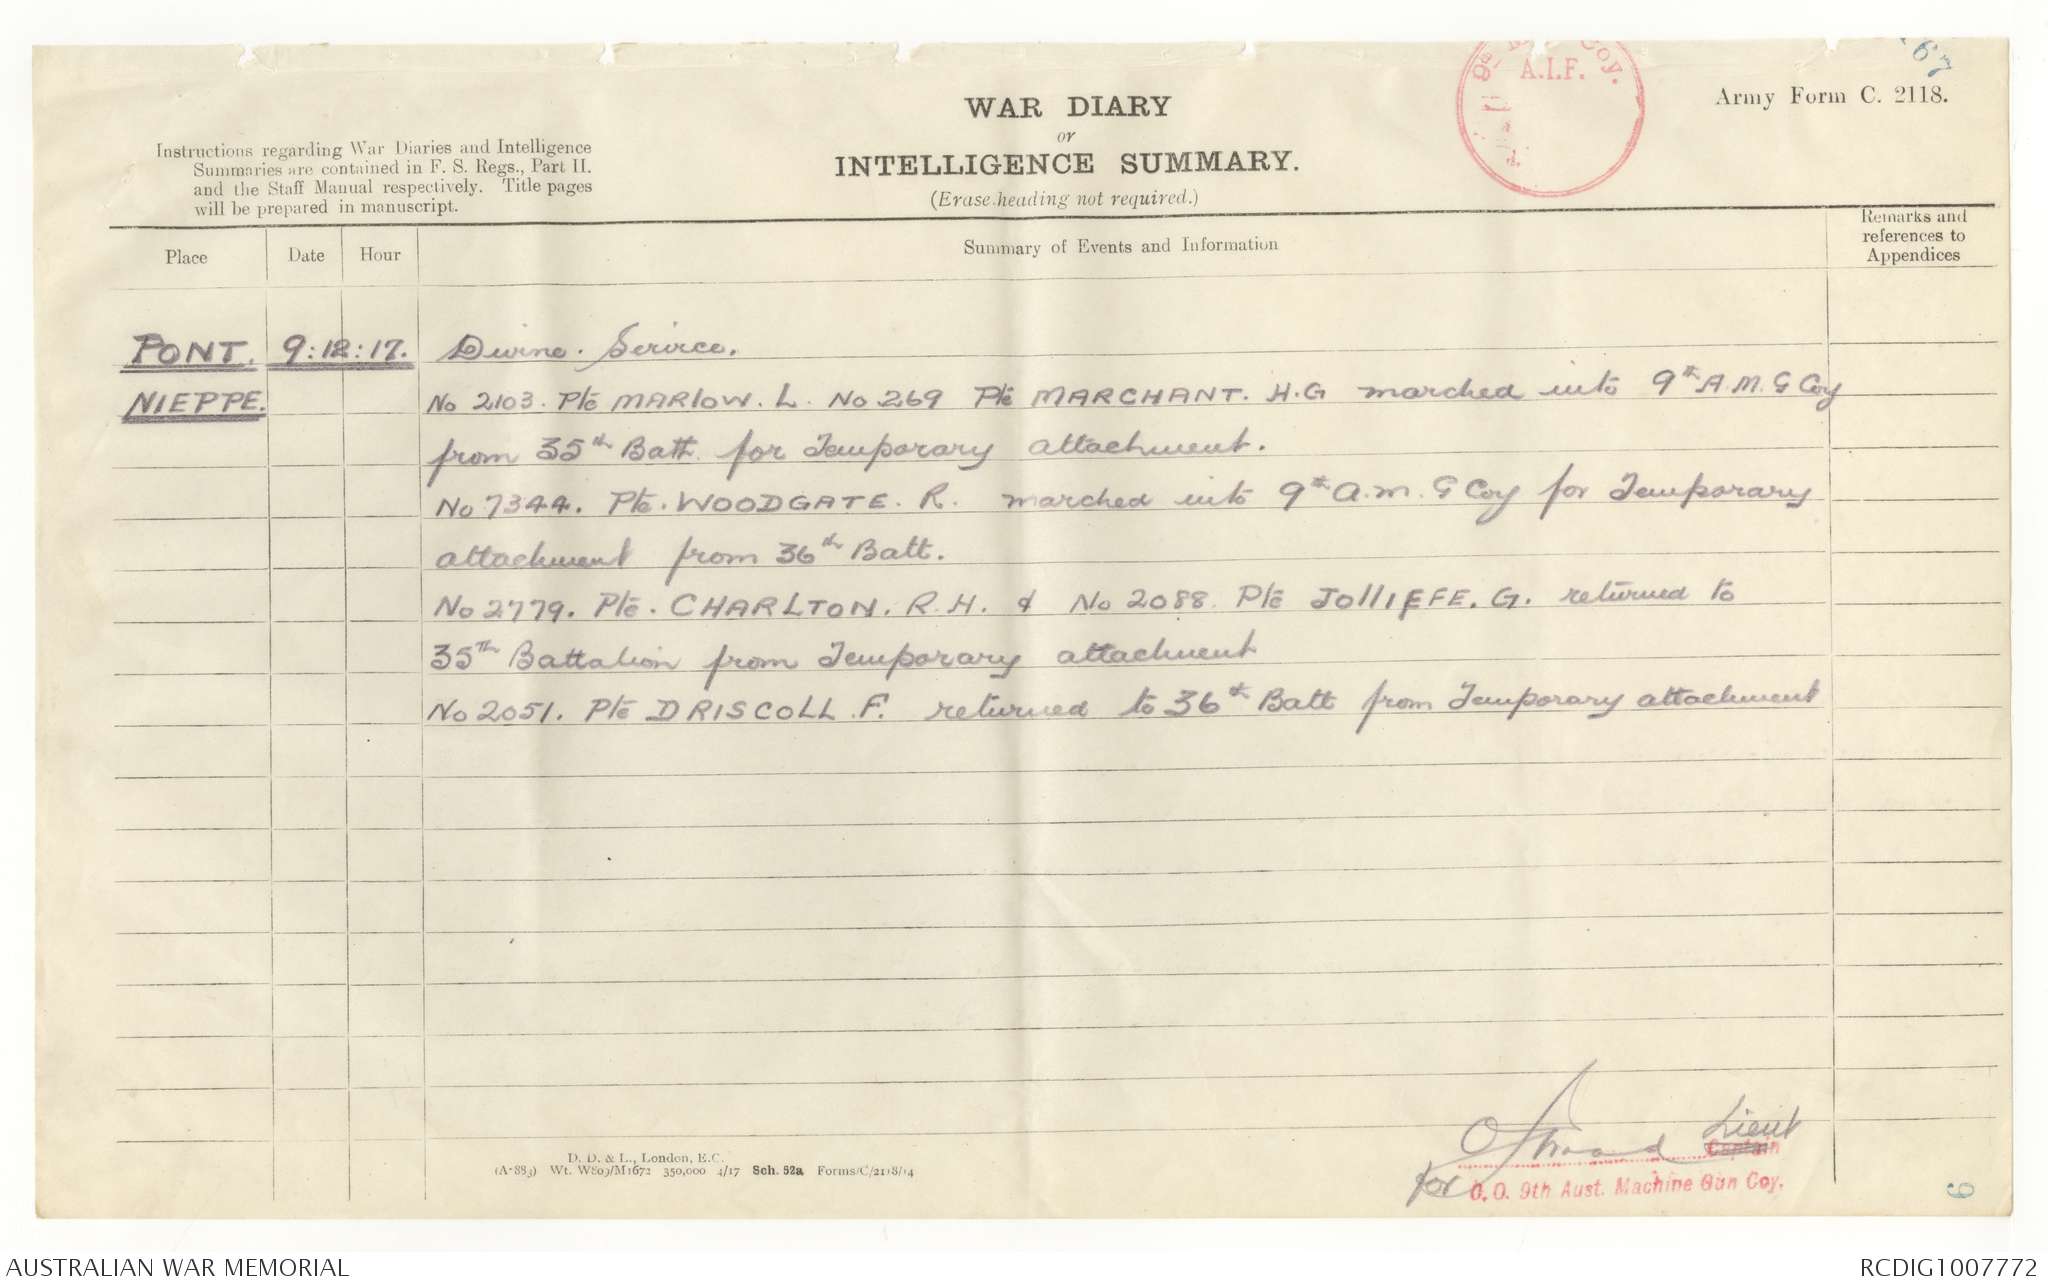 67
Army Form C. 2118.
9th Coy.
A.I.F.
WAR DIARY
or
INTELLIGENCE SUMMARY.
(Erase heading not required.)
Instructions regarding War Diaries and Intelligence
Summaries are contained in F. S. Regs., Part II.
and the Staff Manual respectively. Title pages
will be prepared in manuscript.
Place Date Hour Summary of Events and Information Remarks and references to Appendices
PONT. 9:12:17. Divine. Service.
NIEPPE. No 2103. Pte MARLOW. L. No 269 Pte MARCHANT. H.G marched into 9th A.M.G Coy
from 35th Batt. for Temporary attachment.
No 7344. Pte. WOODGATE. R. marched into 9th A.M.G Coy for Temporary
attachment from 36th Batt.
No 2779. Pte. CHARLTON. R.H. & No 2088. Pte JOLLIFFE. G. returned to
35th Battalion from Temporary attachment
No 2051. Pte DRISCOLL. F. returned to 36th Batt from Temporary attachment
Lieut
Captain
for O.C. 9th Aust. Machine Gun Coy.
D. D. & L., London, E.C.
(A·883) Wt. W809/M1672 350,000 4/17 Sch. 52a Forms/C/2118/14
6
AUSTRALIAN WAR MEMORIAL
RCDIG1007772